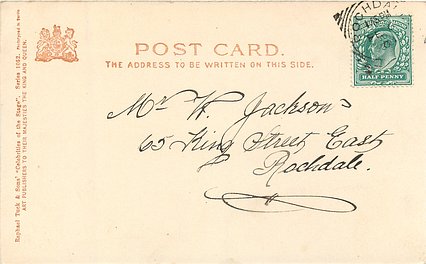 POST CARD.
THE ADDRESS TO BE WRITTEN ON THIS SIDE.
ROCHDA
HALF PENNY
Mr W. Jackson
65 King Street East
Rochdale.
Raphael Tuck & Sons' "Celebrities of the Stage", Series 1662.
ART PUBLISHERS TO THEIR MAJESTIES THE KING AND QUEEN.